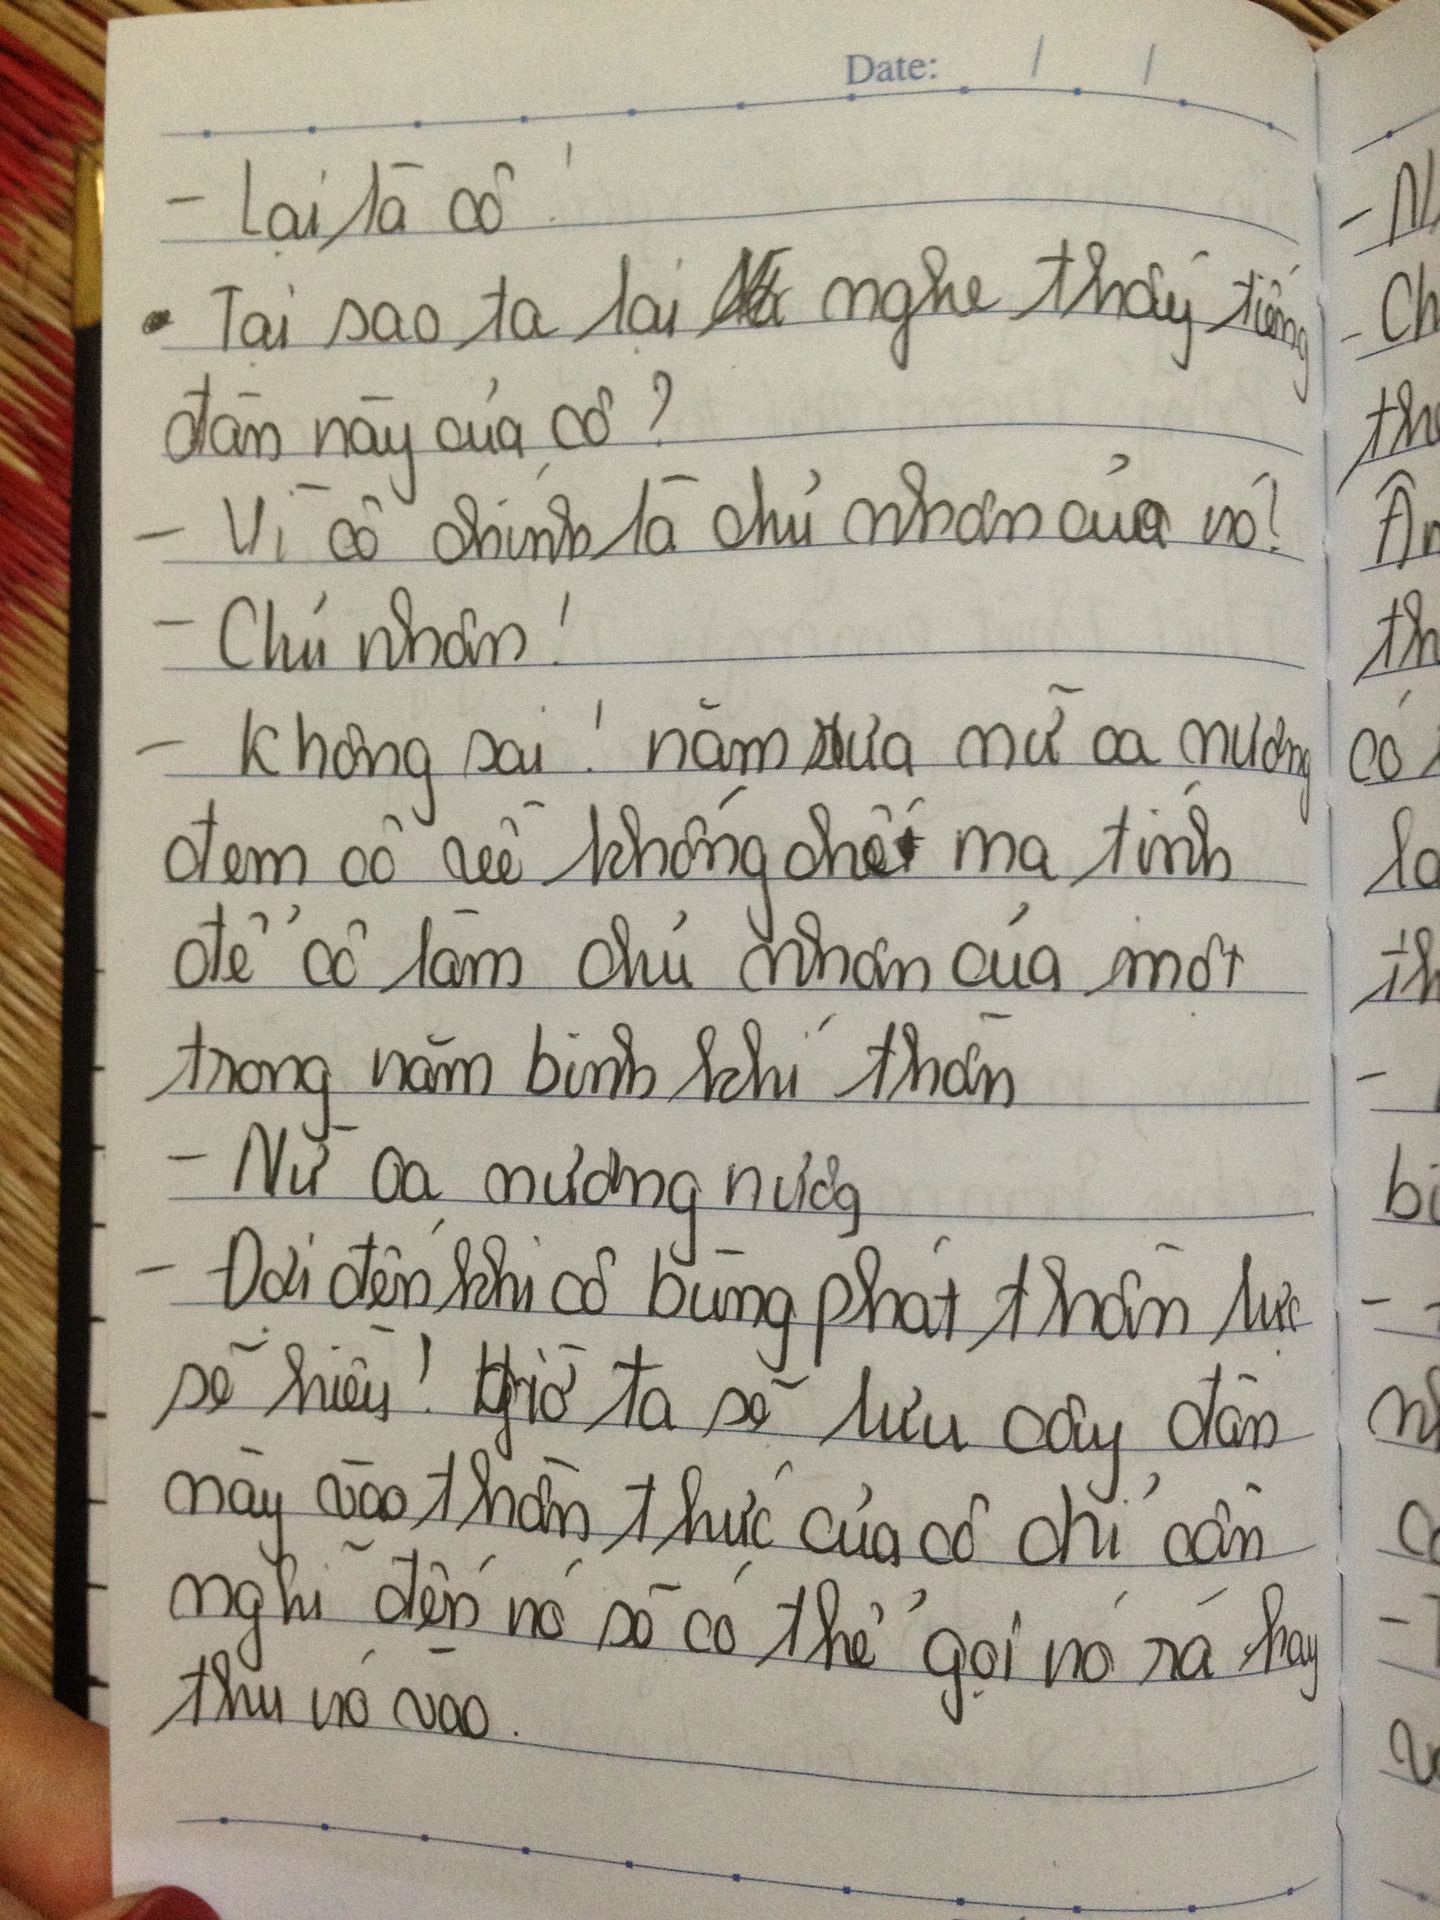 Date: / /
- Lại là cô!
- Tại sao ta lại nghe thấy tiếng
đàn này của cô?
- Vì cô chính là chủ nhân của nó!
- Chủ nhân!
- Không sai! năm xưa nữ oa nương
đem cô về khống chế ma tính
để cô làm chủ nhân của một
trong năm binh khí thần
- Nữ oa nương nướg
- Đợi đến khi cô bùng phát thần lực
sẽ hiểu! giờ ta sẽ lưu cây đàn
này vào thần thức của cô chỉ cần
nghĩ đến nó sẽ có thể gọi nó rá hay
thu nó vào.